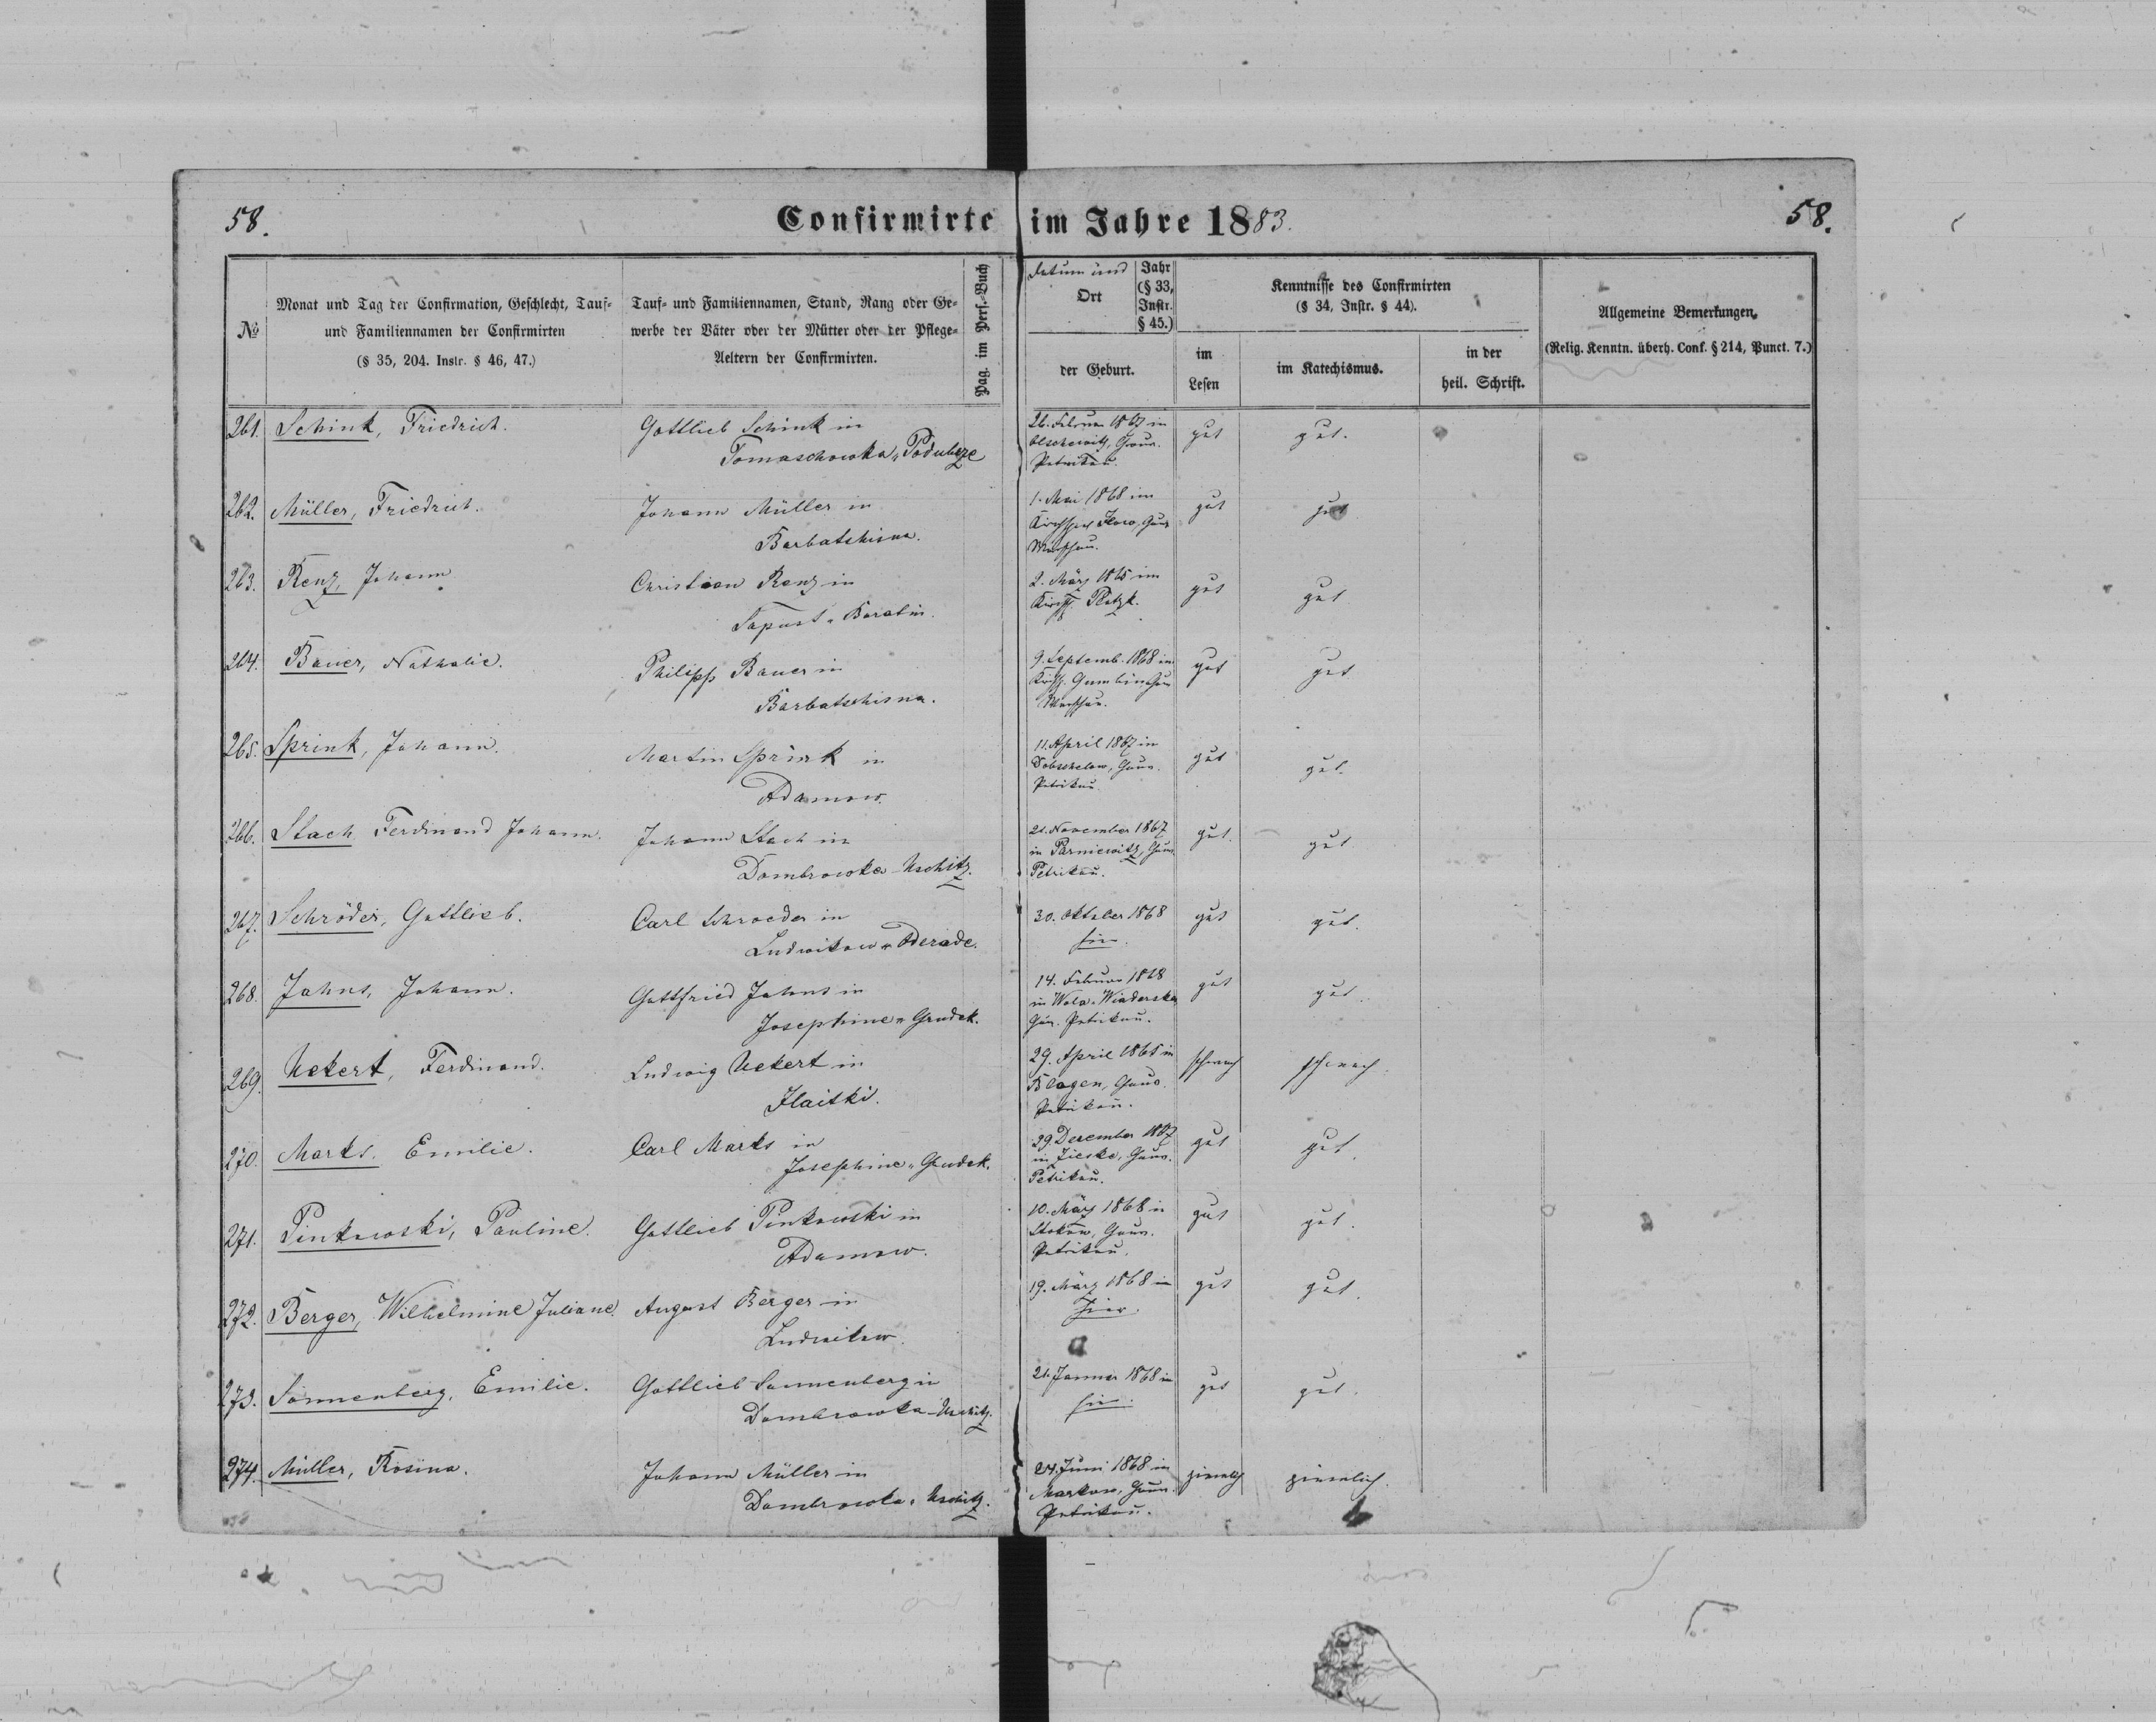 58.
Confirmirte im Jahre 1883.
58.
№
Monat und Tag der Confirmation, Geschlecht, Tauf=
und Familiennamen der Confirmirten
(§ 35, 204. Instr. § 46, 47.)
Tauf= und Familiennamen, Stand, Rang oder Ge=
werbe der Väter oder der Mütter oder der Pflege=
Aeltern der Confirmirten.
Pag. im Pers.=Buch
Datum und
Ort
Jahr
(§ 33,
Instr.
§ 45.)
der Geburt.
Kenntnisse des Confirmirten
(§ 34, Instr. § 44).
im
Lesen
im Katechismus.
in der
heil. Schrift.
Allgemeine Bemerkungen.
(Relig. Kenntn. überh. Conf. § 214, Punct. 7.)
261. Schink, Friedrich.
Gottlieb Schink in
Tomaschowka-Podubze
26. Februar 1867 in
Olschewitz, Gouv.
Petrikau.
gut
gut.
262. Müller, Friedrich.
Johann Müller in
Barbatshisna.
1. Mai 1868 im
Kirchspiel Ilow, Gouv
Warschau.
gut
gut
263. Renz, Johann
Christian Renz in
Sapust-Boratin.
2. März 1865 im
Kirchsp. Plotzk.
gut
gut
264. Bauer, Nathalie.
Philipp Bauer in
Barbatschisna.
9. Septemb. 1868 im
Kirchsp. Gumbin Gouv
Warschau.
gut
gut
265. Sprink, Johann.
Martin Sprink in
Adamow.
11. April 1867 in
Dobschelow, Gouv.
Petrikau
gut
gut.
266. Stach Ferdinand Johann.
Johann Stach in
Dombrowka-Uschitz.
21. November 1867
in Parniewitz, Gouv.
Petrikau.
gut.
gut
267. Schröder, Gottlieb.
Carl Schroeder in
Ludwikow-Oderade.
30. Oktober 1868
hier.
gut
gut.
268. Jahns, Johann.
Gottfried Jahns in
Josephine-Grudek.
14. Februar 1868
in Wola-Wiaderska
Gouv. Petrikau.
gut
gut.
269. Uekert, Ferdinand.
Ludwig Uekert in
Ilaitki.
29. April 1865 in
Blogen, Gouv.
Petrikau.
schwach
schwach.
270. Marks. Emilie.
Carl Marks in
Josephine-Grudek.
29. December 1867
in Zieske, Gouv.
Petrikau.
gut
gut.
271. Pinkowski, Pauline.
Gottlieb Pinkowski in
Adamow.
10. März 1868 in
Stokow, Gouv.
Petrikau.
gut
gut.
272. Berger, Wilhelmine Juliane.
August Berger in
Ludwikow.
19. März 1868 in
hier.
gut
gut.
273. Sonnenberg, Emilie.
Gottlieb Sonnenberg in
Dombrowka-Uschitz.
21. Januar 1868 in
hier.
gut
gut.
274. Müller, Rosina.
Johann Müller in
Dombrowka-Uschitz.
24. Juni 1868 in
Markow, Gouv.
Petrikau.
ziemlich
ziemlich.